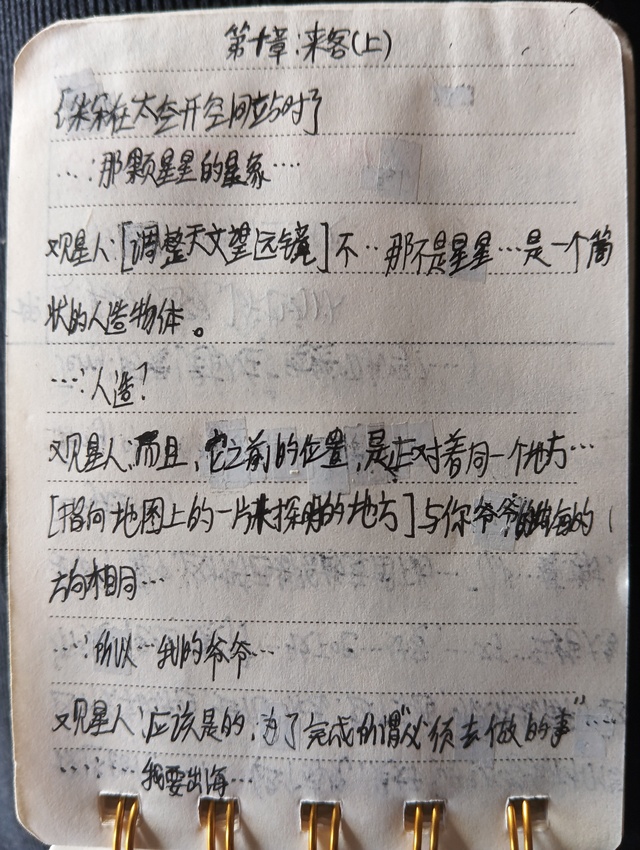 第十章:来客(上)
{朵朵在太空开空间站时了
…:那颗星星的星象…
观星人:[调整天文望远镜]不…那不是星星…是一个筒
状的人造物体。
…:人造?
观星人:而且,它之前的位置,是正对着同一个地方…
[指向地图上的一片未探明的地方]与你爷爷出海的
方向相同…
…:所以…我的爷爷…
观星人:应该是的,为了完成所谓"必须去做的事"…
…:我要出海…